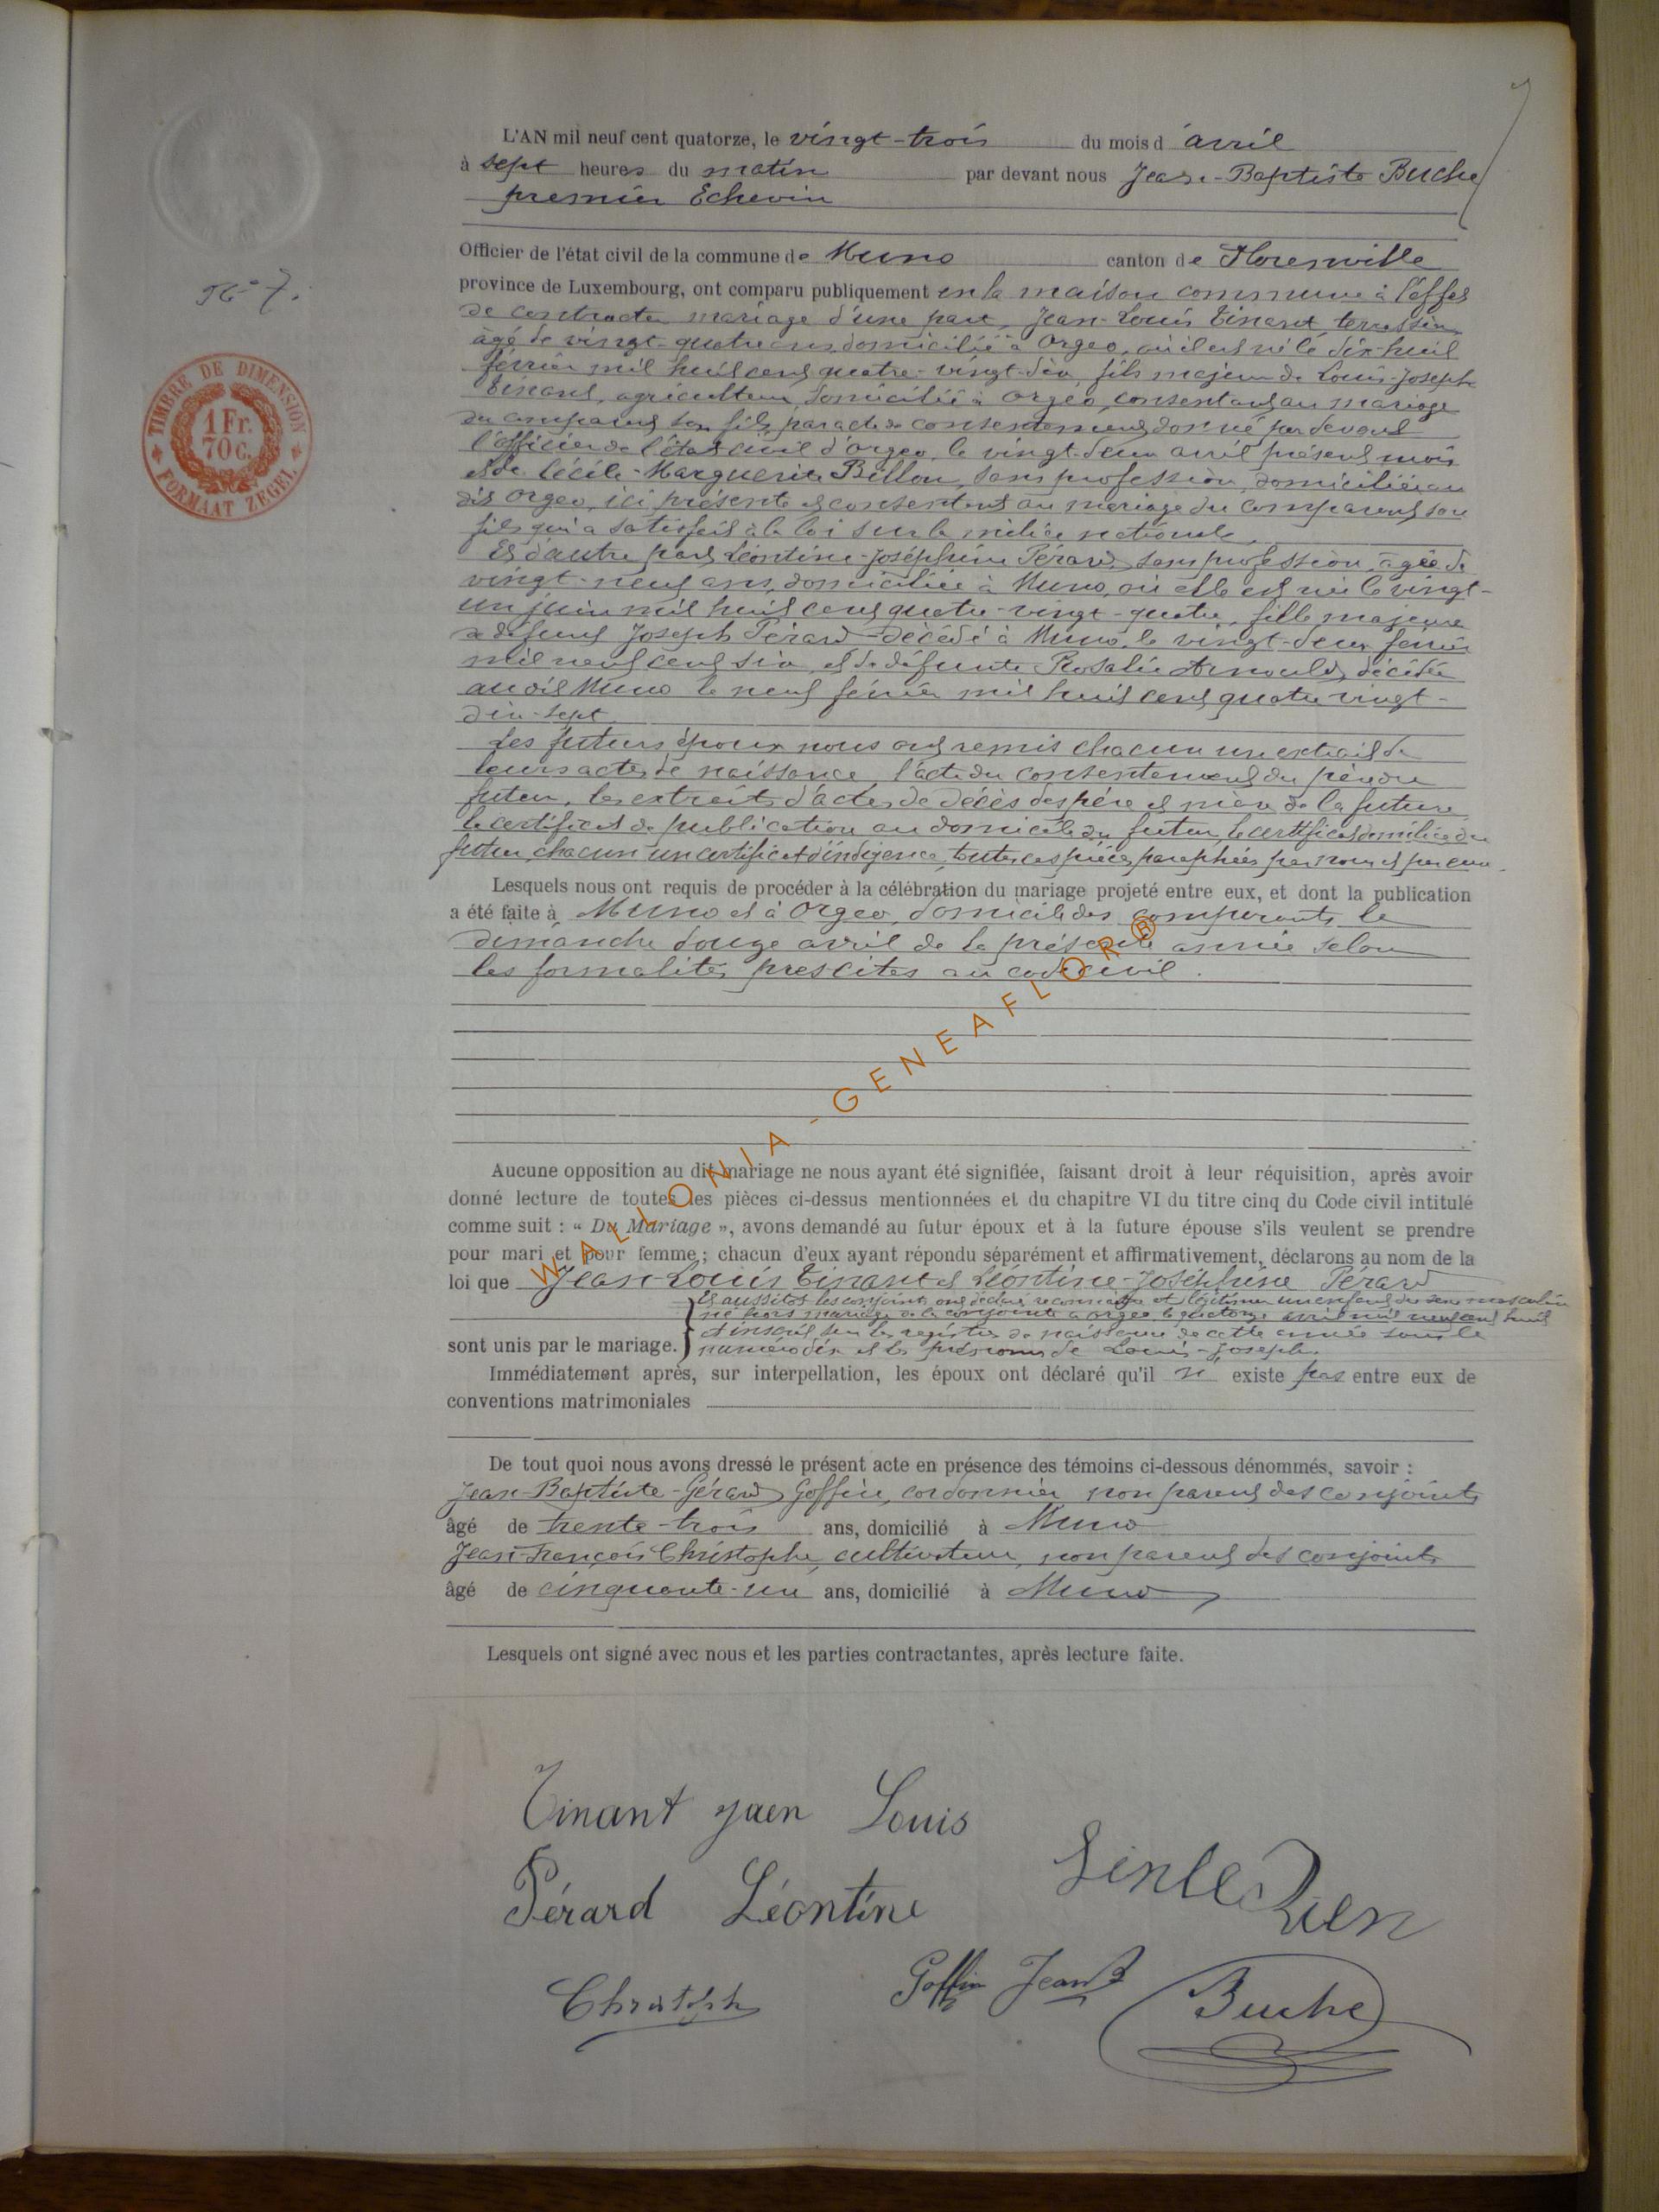 L'AN mil neuf cent quatorze, le vingt-trois du mois d'avril
à sept heures du matin par devant nous Jean-Baptiste Buche
premier Echevin
Officier de l'état civil de la commune de Muno canton de Florenville
N° 7.
province de Luxembourg, ont comparu publiquement en la maison commune à l'effet
de contracter mariage d'une part, Jean-Louis Tinant, terrassier
âgé de vingt-quatre ans, domicilié à Orgeo, où il est né le dix-huit
février mil huit cent quatre-vingt-dix, fils majeur de Louis-Joseph
Tinant, agriculteur, domicilié à Orgeo, consentant au mariage
du comparant son fils, par acte de consentement donné par devant
l'officier de l'état civil d'Orgeo, le vingt-deux avril présent mois
et de Cécile-Marguerite Billon, sans profession, domiciliée au
dit Orgeo, ici présente et consentant au mariage du comparant son
fils qui a satisfait à la loi sur la milice nationale.
Et d'autre part Léontine-Joséphine Pérard, sans profession, âgée de
vingt-neuf ans, domiciliée à Muno, où elle est née le vingt-
un juin mil huit cent quatre-vingt-quatre, fille majeure
de défunt Joseph Pérard décédé à Muno, le vingt-deux février
mil neuf cent six, et de défunte Rosalie Arnould, décédée
au dit Muno le neuf février mil huit cent quatre vingt-
dix-sept.
Les futurs époux nous ont remis chacun un extrait de
leurs actes de naissance, l'acte du consentement du père du
futur, les extraits d'actes de décès des père et mère de la future,
le certificat de publication au domicile du futur, le certificat de milice du
futur, chacun un certificat d'indigence, toutes ces pièces paraphées par nous et par eux.
TIMBRE DE DIMENSION
1 Fr.
70 C.
FORMAAT ZEGEL
Lesquels nous ont requis de procéder à la célébration du mariage projeté entre eux, et dont la publication
a été faite à Muno et à Orgeo, domicile des comparants, le
dimanche douze avril de la présente année selon
les formalités prescites au code civil.
WALLONIA-GENEAFLOR®
Aucune opposition au dit mariage ne nous ayant été signifiée, faisant droit à leur réquisition, après avoir
donné lecture de toutes les pièces ci-dessus mentionnées et du chapitre VI du titre cinq du Code civil intitulé
comme suit : « Du Mariage », avons demandé au futur époux et à la future épouse s'ils veulent se prendre
pour mari et pour femme ; chacun d'eux ayant répondu séparément et affirmativement, déclarons au nom de la
loi que Jean-Louis Tinant et Léontine-Joséphine Pérard
Et aussitôt les conjoints ont déclaré reconnaître et légitimer un enfant du sexe masculin
né hors mariage de la conjointe à Orgeo le quatorze avril mil neuf cent huit
et inscrit sur les registres de naissance de cette année sous le
sont unis par le mariage. numéro dix et les prénoms de Louis-Joseph.
Immédiatement après, sur interpellation, les époux ont déclaré qu'il n' existe pas entre eux de
conventions matrimoniales
De tout quoi nous avons dressé le présent acte en présence des témoins ci-dessous dénommés, savoir :
Jean-Baptiste-Gérard Goffin, cordonnier, non parent des conjoints
âgé de trente-trois ans, domicilié à Muno
Jean-François Christophe, cultivateur, non parent des conjoints
âgé de cinquante-un ans, domicilié à Muno
Lesquels ont signé avec nous et les parties contractantes, après lecture faite.
Tinant Jaen Louis
Pérard Léontine
Christoph
Goffin Jean B
Buche